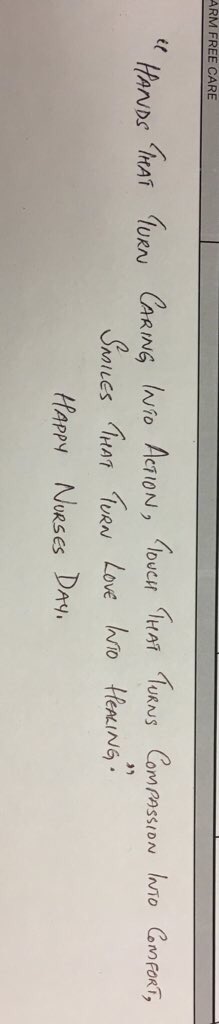 ARM FREE CARE
"HANDS THAT TURN CARING INTO ACTION, TOUCH THAT TURNS COMPASSION INTO COMFORT,
SMILES THAT TURN LOVE INTO HEALING."
HAPPY NURSES DAY.